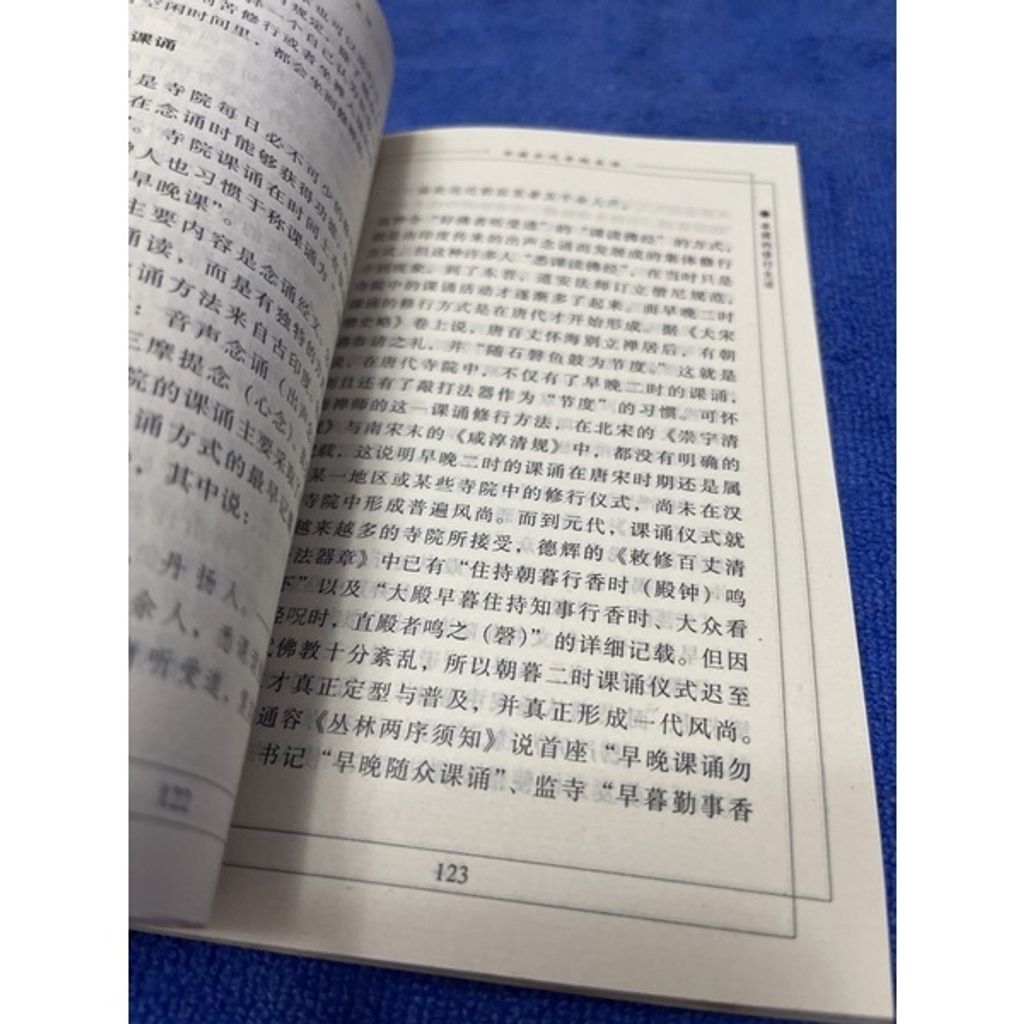 课诵
是寺院每日必不可少的
在念诵时能够获得功
寺院课诵在时间上
人也习惯于称课诵为
早晚课”。
主要内容是念诵经文
诵读，而是有独特的
诵方法来自古印度
：音声念诵（出声
三摩提念（心念）
院的课诵主要采
诵方式的最早记
，其中说：
丹扬人。
余人，悉课
听受道，
122
“课读佛经”的方式，
就是由印度传来的出声念诵而发展成的集体修行
方式。但这种许多人“悉课读佛经”，在当时只是
个别现象。到了东晋，道安法师订立僧尼规范，
寺院中的课诵活动才逐渐多了起来。而早晚二时
课诵的修行方式是在唐代才开始形成。据《大宋
僧史略》卷上说，唐百丈怀海别立禅居后，有朝
参请之礼，并“随石磬鱼鼓为节度。”这就是
说，在唐代寺院中，不仅有了早晚二时的课诵，
而且还有了敲打法器作为“节度”的习惯。可怀
禅师的这一课诵修行方法，在北宋的《崇宁清
》与南宋末的《咸淳清规》中，都没有明确的
载，这说明早晚二时的课诵在唐宋时期还是属
某一地区或某些寺院中的修行仪式，尚未在汉
寺院中形成普遍风尚。而到元代，课诵仪式就
越来越多的寺院所接受，德辉的《敕修百丈清
法器章》中已有“住持朝暮行香时（殿钟）鸣
下”以及“大殿早暮住持知事行香时、大众看
经呪时，直殿者鸣之（磬）”的详细记载。但因
佛教十分紊乱，所以朝暮二时课诵仪式迟至
才真正定型与普及，并真正形成一代风尚。
通容《丛林两序须知》说首座“早晚课诵勿
书记“早晚随众课诵”、监寺“早暮勤事香
123